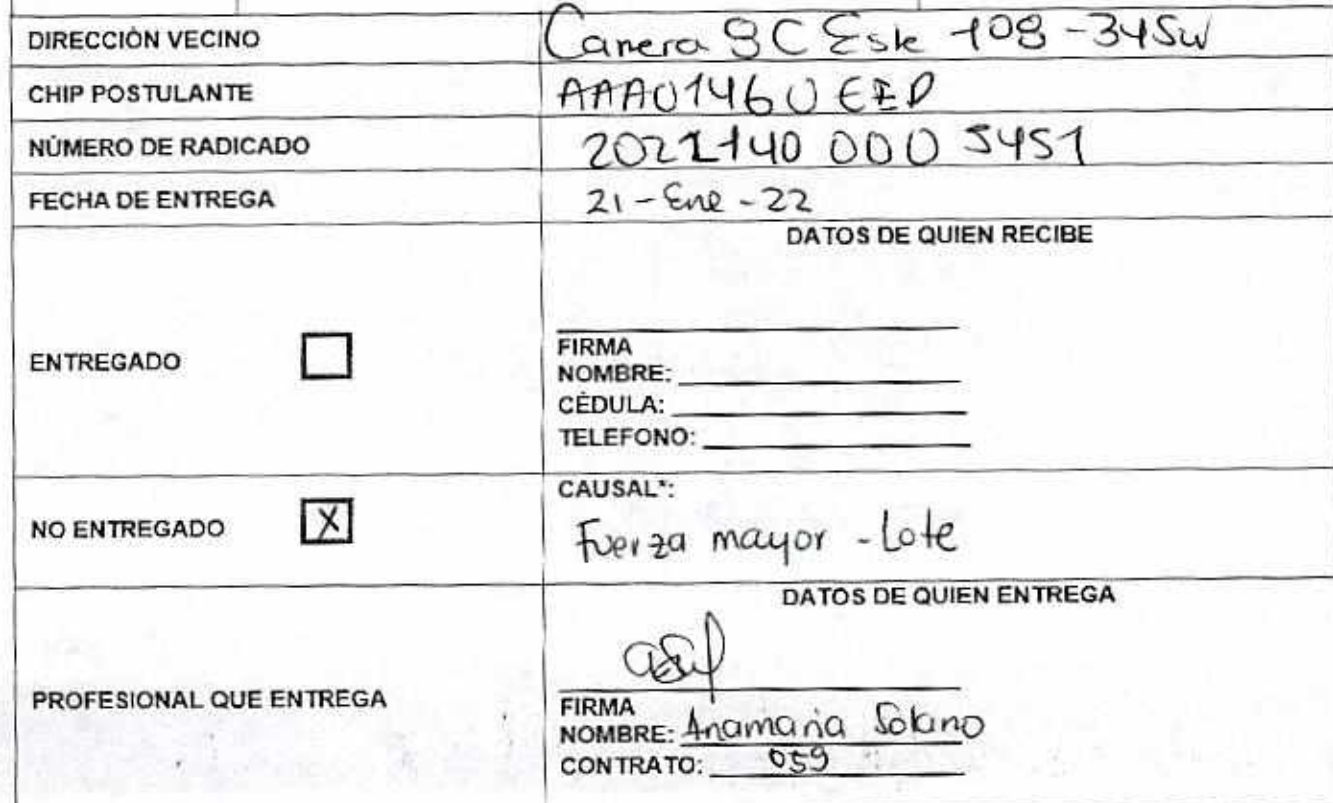 DIRECCIÓN VECINO Carrera 9C Este 108-34Sur
CHIP POSTULANTE AAA0146UEEP
NÚMERO DE RADICADO 2021140 000 5451
FECHA DE ENTREGA 21-Ene-22
DATOS DE QUIEN RECIBE
ENTREGADO
FIRMA
NOMBRE:
CÉDULA:
TELEFONO:
NO ENTREGADO X
CAUSAL*:
Fuerza mayor - Lote
DATOS DE QUIEN ENTREGA
PROFESIONAL QUE ENTREGA
FIRMA
NOMBRE: Anamaria Solano
CONTRATO: 059